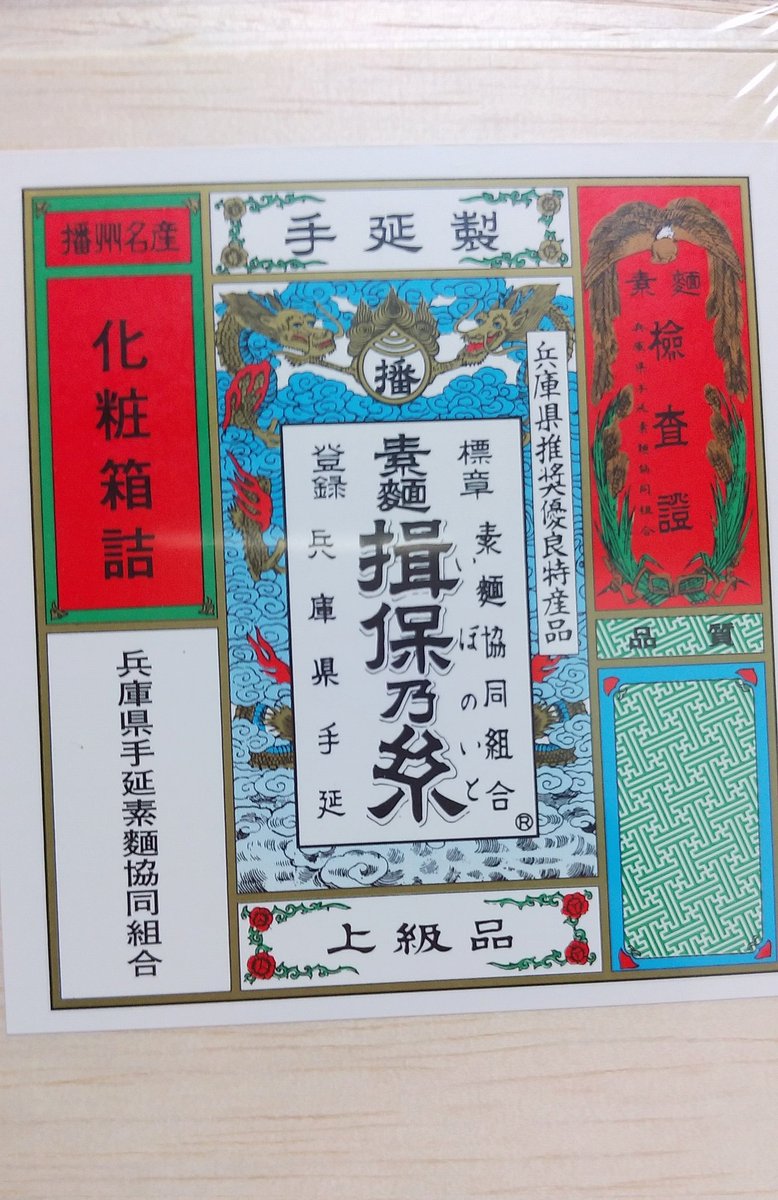 手延製
播州名産
化粧箱詰
兵庫県手延素麵協同組合
播
兵庫県推奨優良特産品
標章
素麵協同組合
素麵
揖保乃糸
いぼのいと
登録
兵庫県手延
®
上級品
素麵
檢査證
兵庫県手延素麵協同組合
品質